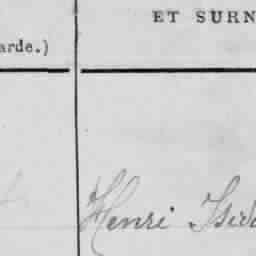 ET SURN
arde.)
Henri Isid